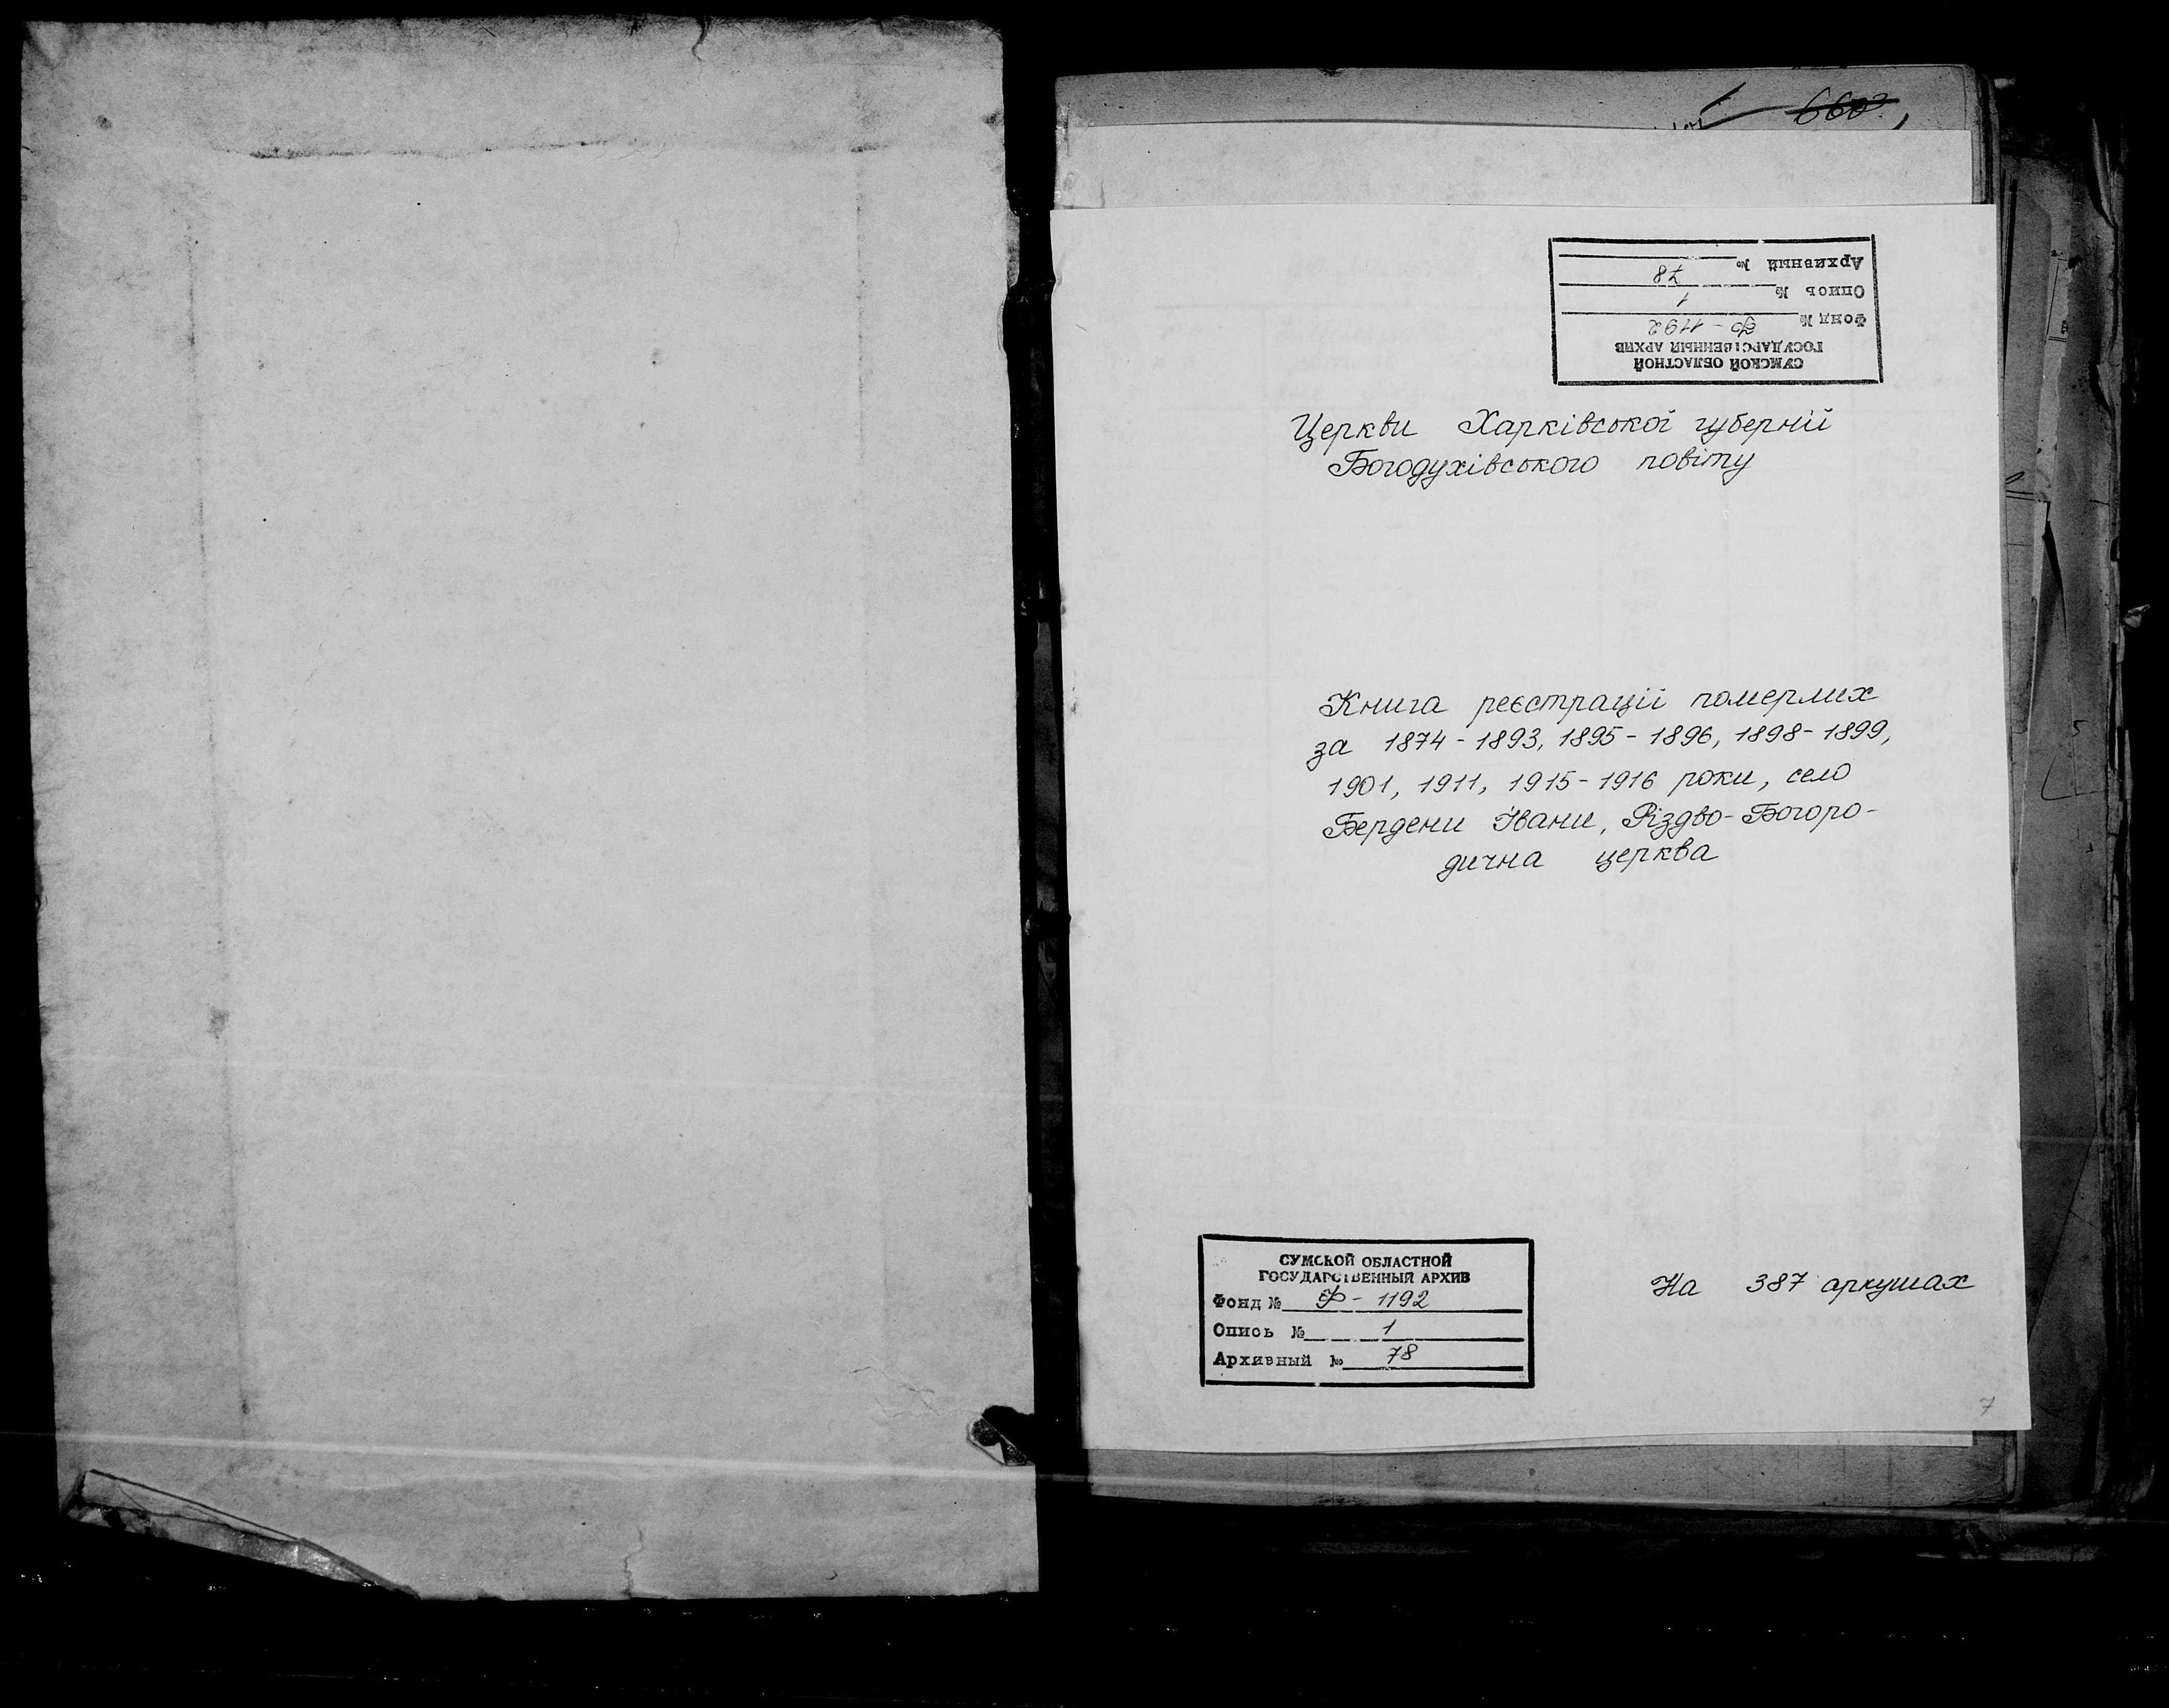 660
СУМСКОЙ ОБЛАСТНОЙ
ГОСУДАРСТВЕННЫЙ АРХИВ
Фонд № Ф - 1192
Опись № 1
Архивный № 78
Церкви Харківської губернії
Богодухівського повіту
Книга реєстрації померлих
за 1874 - 1893, 1895 - 1896, 1898 - 1899,
1901, 1911, 1915 - 1916 роки, село
Бердени Івани, Різдво-Богоро-
дична церква
СУМСКОЙ ОБЛАСТНОЙ
ГОСУДАРСТВЕННЫЙ АРХИВ
Фонд № Ф - 1192
Опись № 1
Архивный № 78
На 387 аркушах
7